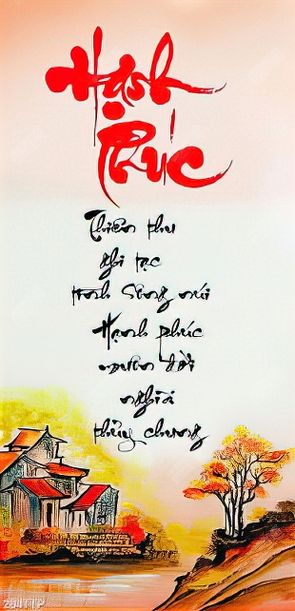 Hạnh
Phúc
Thiên thu
ghi tạc
tình sông núi
Hạnh phúc
muôn đời
nghĩa
thủy chung